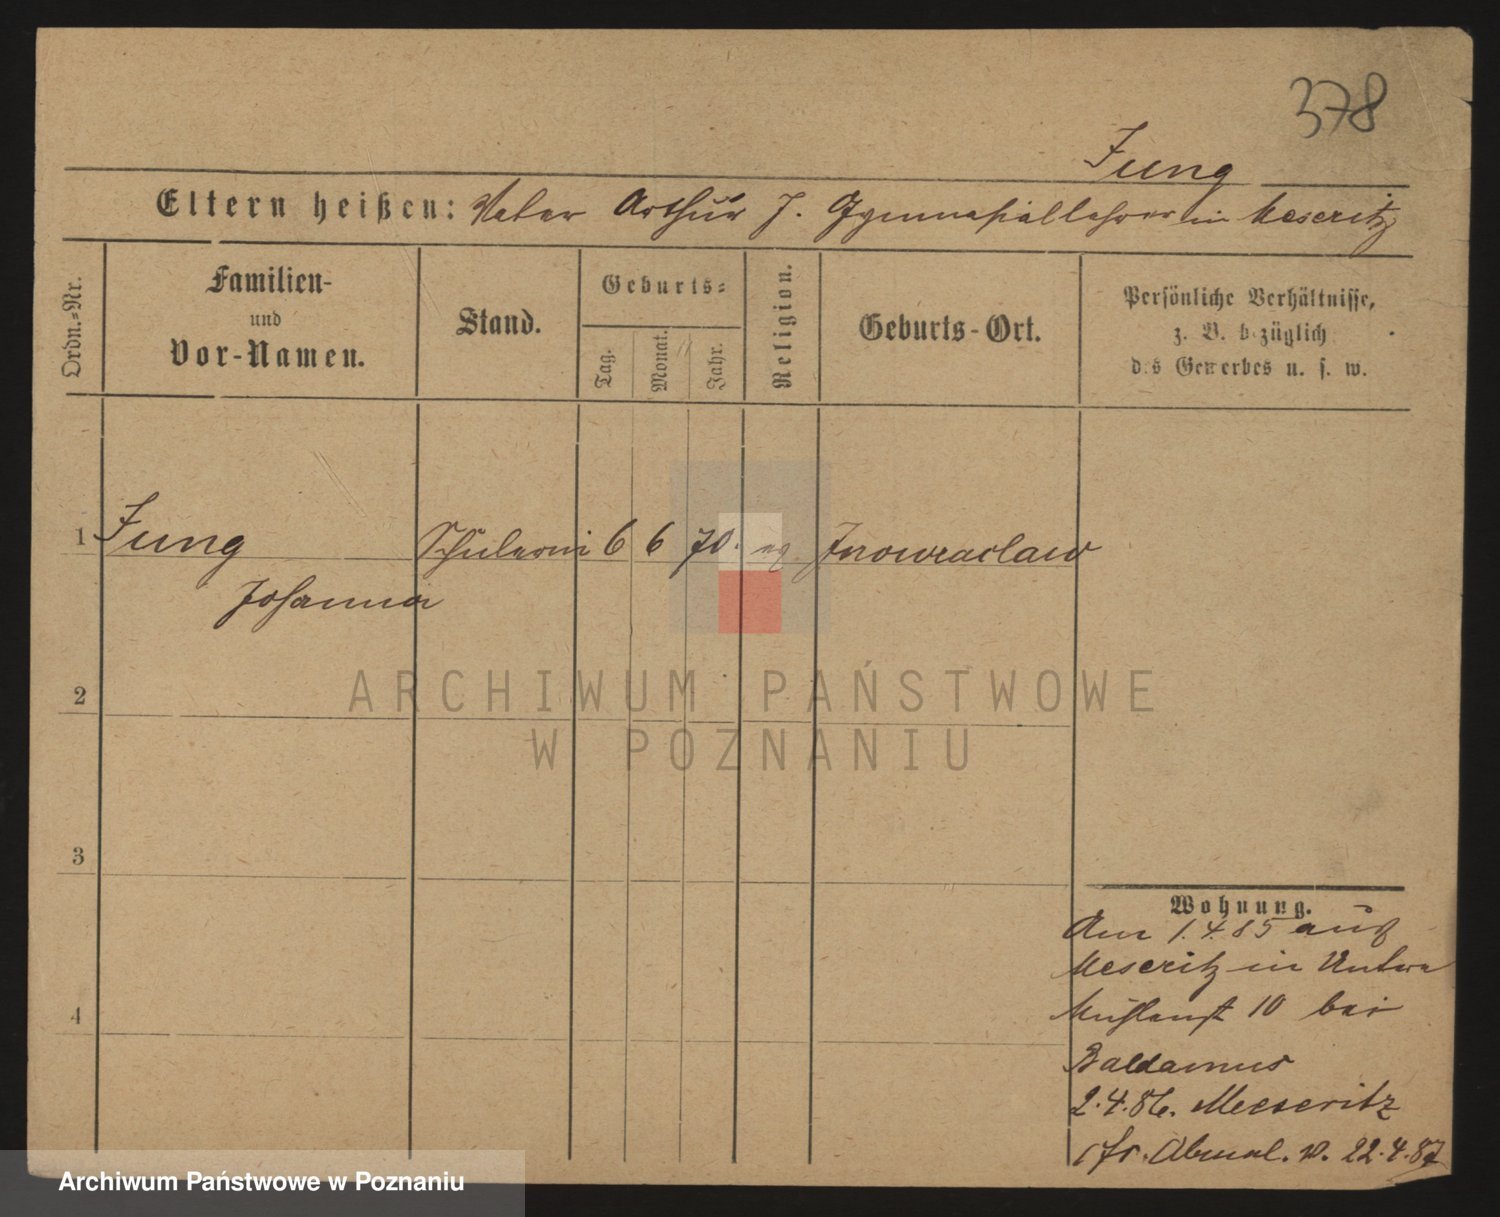 378
Jung
Eltern heißen: Vater Arthur J. Gymnasiallehrer in Meseritz
Ordn.-Nr.
Familien-
und
Vor-Namen.
Stand.
Geburts-
Tag.
Monat.
Jahr.
Religion.
Geburts-Ort.
Persönliche Verhältnisse,
z. B. bezüglich
des Gewerbes u. s. w.
1 Jung Schülerin 6 6 70. ev. Inowraclaw
Johanna
ARCHIWUM PAŃSTWOWE
W POZNANIU
2
3
4
Wohnung.
Am 1.4.85 aus
Meseritz in Unter
Mühlenst 10 bei
Baldamus
2.4.86. Meseritz
Abmel. v. 22.4.87
Archiwum Państwowe w Poznaniu